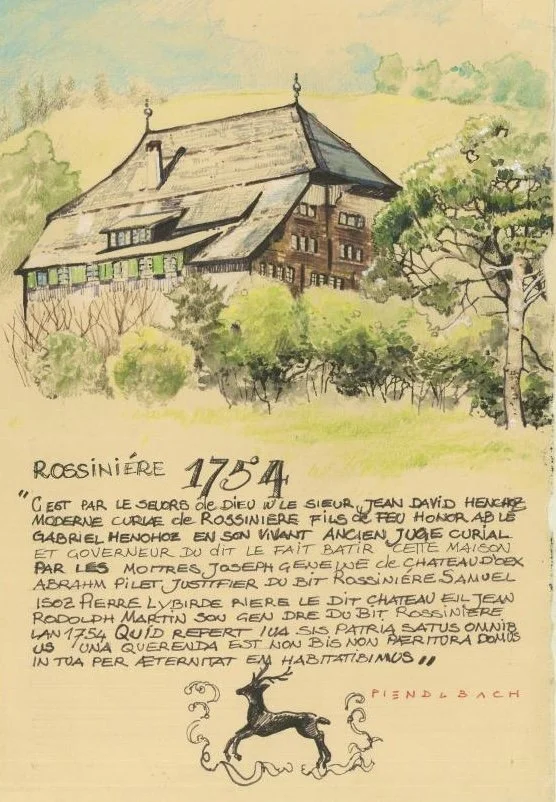 ROSSINIÉRE 1754
"C EST PAR LE SEUORS de DIEU LE SIEUR, JEAN DAVID HENCHOZ
MODERNE CURIAE de ROSSINIERE FILS de FEU HONOR ABLE
GABRIEL HENOHOZ EN SON VIVANT ANCIEN JUGE CURIAL
ET GOVERNEUR DU DIT LE FAIT BATIR CETTE MAISON
PAR LES MOITRES JOSEPH GENEINE de CHATEAUD'OEX
ABRAHM PILET JUSTIFIER DU BIT ROSSINIÈRE SAMUEL
ISOZ PIERRE LYBIRDE RIERE LE DIT CHATEAU EIL JEAN
RODOLPH MARTIN SON GEN DRE DU BIT ROSSINIERE
LAN 1754 QUID REFERT IUA SIS PATRIA SATUS OMNIB
US UNA QUERENDA EST NON BIS NON PÆRITURA DOMUS
IN TUA PER ÆTERNITAT EM HABITATIBIMUS"
PIENDLBACH